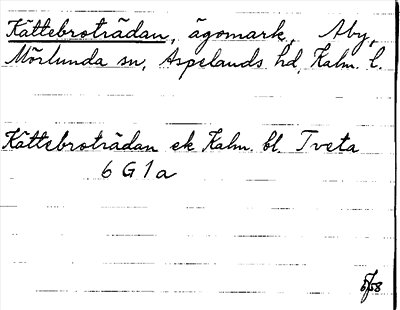 Kättebroträdan, ägomark, Åby,
Mörlunda sn, Aspelands hd, Kalm. l.
Kättebroträdan ek Kalm. bl. Tveta
6 G 1 a